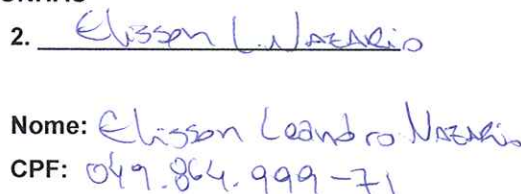 2. Elisson L. Nazario
Nome: Elisson Leandro Nazario
CPF: 049.864.999-71